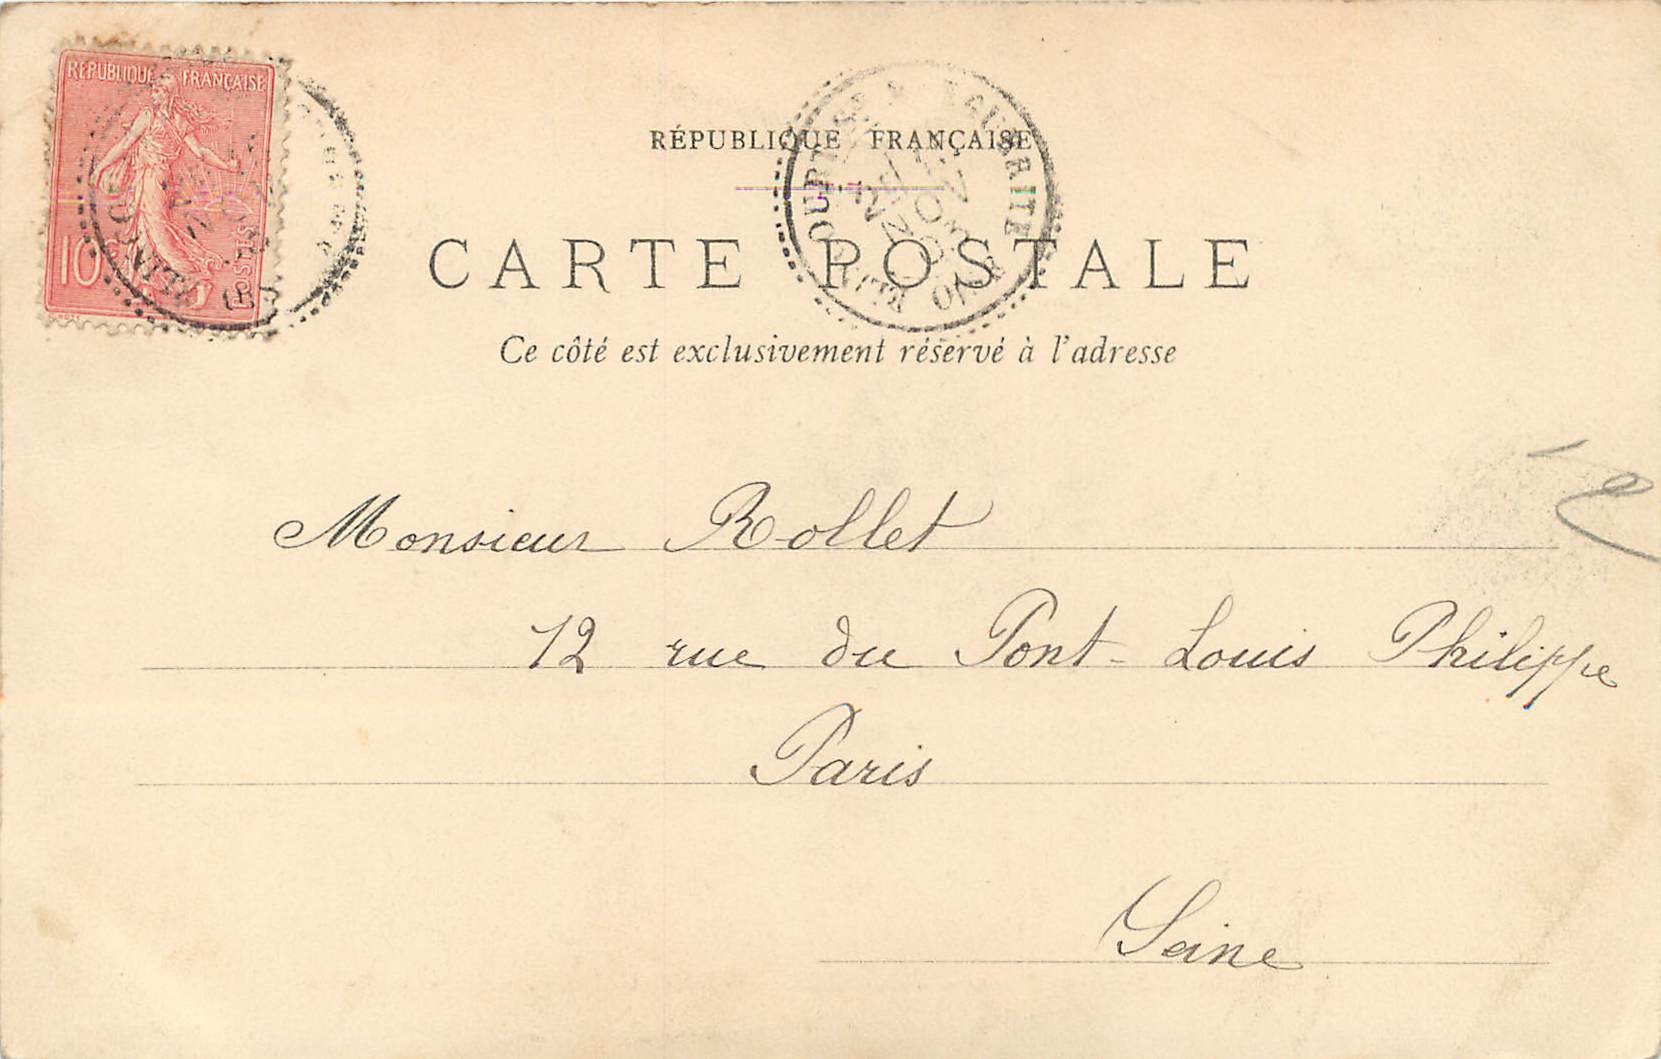 RÉPUBLIQUE FRANÇAISE
10c
POSTES
RÉPUBLIQUE FRANÇAISE
CARTE POSTALE
Ce côté est exclusivement réservé à l'adresse
Monsieur Rollet
12 rue du Pont-Louis Philippe
Paris
Seine